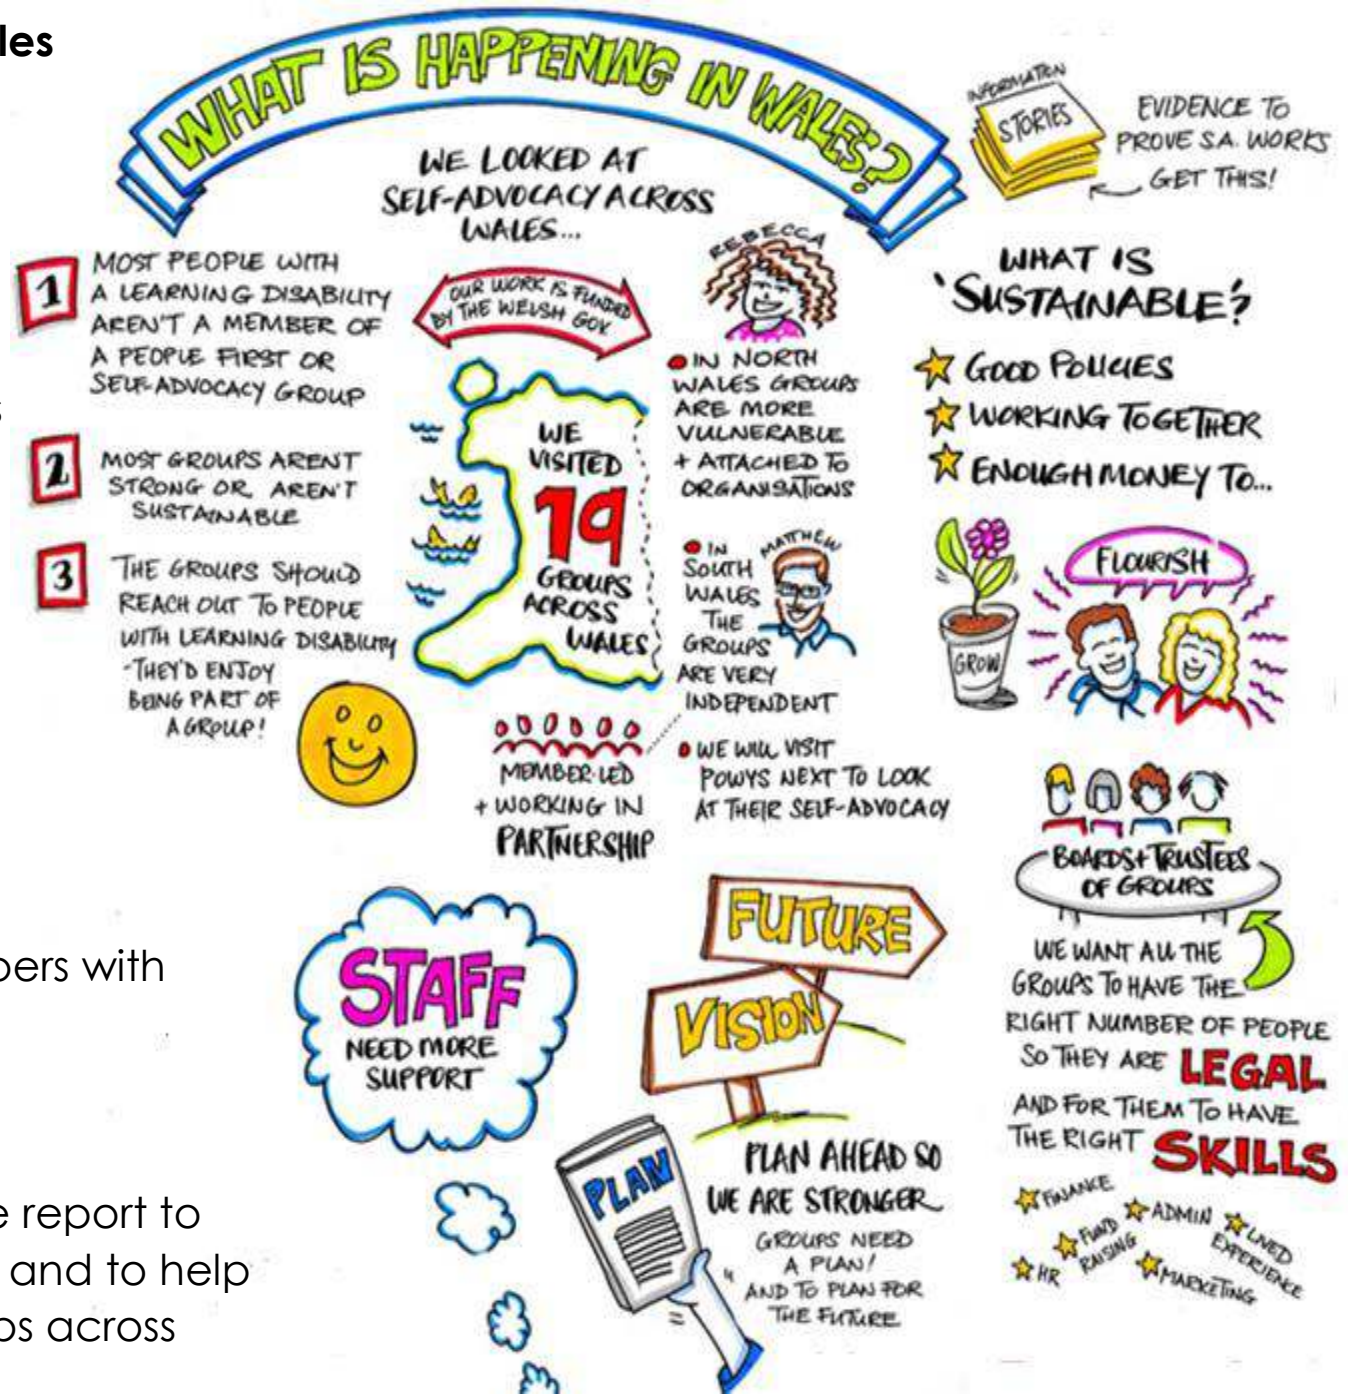 les
s
bers with
e report to
and to help
ps across
WHAT IS HAPPENING IN WALES?
WE LOOKED AT
SELF-ADVOCACY ACROSS
WALES...
INFORMATION
STORIES
EVIDENCE TO
PROVE S.A. WORKS
GET THIS!
1
MOST PEOPLE WITH
A LEARNING DISABILITY
AREN'T A MEMBER OF
A PEOPLE FIRST OR
SELF-ADVOCACY GROUP
2
MOST GROUPS AREN'T
STRONG OR AREN'T
SUSTAINABLE
3
THE GROUPS SHOULD
REACH OUT TO PEOPLE
WITH LEARNING DISABILITY
-THEY'D ENJOY
BEING PART OF
A GROUP!
OUR WORK IS FUNDED
BY THE WELSH GOV.
WE
VISITED
19
GROUPS
ACROSS
WALES
MEMBER-LED
+ WORKING IN
PARTNERSHIP
REBECCA
IN NORTH
WALES GROUPS
ARE MORE
VULNERABLE
+ ATTACHED TO
ORGANISATIONS
MATTHEW
IN
SOUTH
WALES
THE
GROUPS
ARE VERY
INDEPENDENT
WE WILL VISIT
POWYS NEXT TO LOOK
AT THEIR SELF-ADVOCACY
WHAT IS
'SUSTAINABLE'?
GOOD POLICIES
WORKING TOGETHER
ENOUGH MONEY TO...
GROW
FLOURISH
BOARDS + TRUSTEES
OF GROUPS
WE WANT ALL THE
GROUPS TO HAVE THE
RIGHT NUMBER OF PEOPLE
SO THEY ARE LEGAL
AND FOR THEM TO HAVE
THE RIGHT SKILLS
FINANCE
ADMIN
LIVED
EXPERIENCE
FUND
RAISING
HR
MARKETING
STAFF
NEED MORE
SUPPORT
FUTURE
VISION
PLAN
PLAN AHEAD SO
WE ARE STRONGER
GROUPS NEED
A PLAN!
AND TO PLAN FOR
THE FUTURE